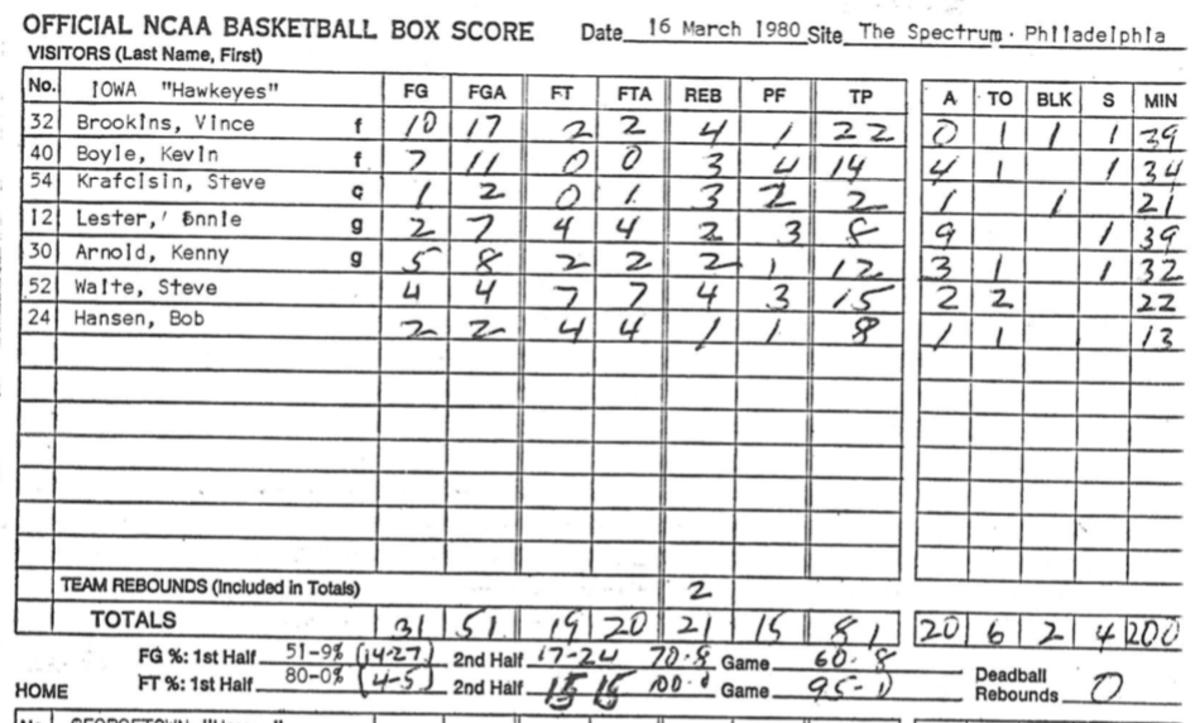 OFFICIAL NCAA BASKETBALL BOX SCORE Date 16 March 1980 Site The Spectrum · Philadelphia
VISITORS (Last Name, First)
No. IOWA "Hawkeyes" FG FGA FT FTA REB PF TP A TO BLK S MIN
32 Brookins, Vince f 10 17 2 2 4 1 22 0 1 1 1 39
40 Boyle, Kevin f 7 11 0 0 3 4 14 4 1 1 34
54 Krafcisin, Steve c 1 2 0 1 3 2 2 1 1 21
12 Lester, g 2 7 4 4 2 3 8 9 1 39
30 Arnold, Kenny g 5 8 2 2 2 1 12 3 1 1 32
52 Waite, Steve 4 4 7 7 4 3 15 2 2 22
24 Hansen, Bob 2 2 4 4 1 1 8 1 1 13
TEAM REBOUNDS (Included in Totals) 2
TOTALS 31 51 19 20 21 15 81 20 6 2 4 200
FG %: 1st Half 51-9% (14-27) 2nd Half 17-24 70.8 Game 60.8
FT %: 1st Half 80-0% (4-5) 2nd Half 15 15 100.0 Game 95-0
Deadball Rebounds 0
HOME
No. GEORGETOWN